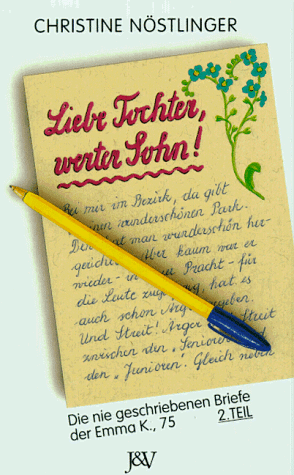 CHRISTINE NÖSTLINGER
Liebe Tochter,
werter Sohn!
Bei mir im Bezirk, da gibt
einen wunderschönen Park.
Den hat man wunderschön her-
gerichtet. Aber kaum war er
wieder - in Pracht - für
die Leute hat es
auch schon
Und Streit! Ärger Streit
zwischen den „Senioren
den „Junioren". Gleich neben
Die nie geschriebenen Briefe
der Emma K., 75 2.TEIL
J&V